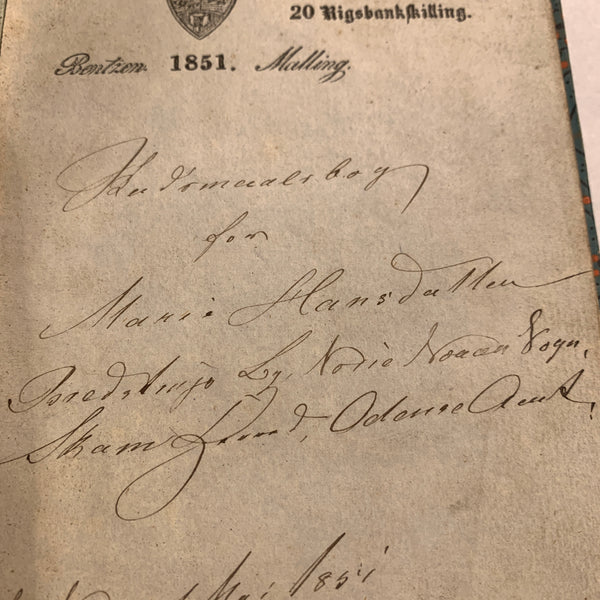 20 Rigsbankskilling.
Bentzen. 1851. Malling.
Skudsmaalsbog
for
Marie Hansdatter
Bredstrup By, Næraa Sogn,
Skam Herred, Odense Amt.
Mai 1851